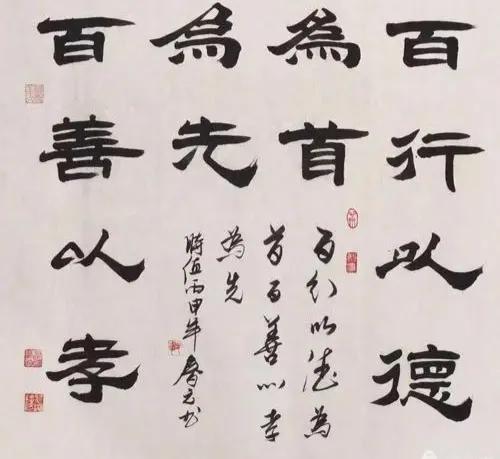 百行以德
為首
百善以孝
為先
百行以德為
首百善以孝
為先
時值丙申年春